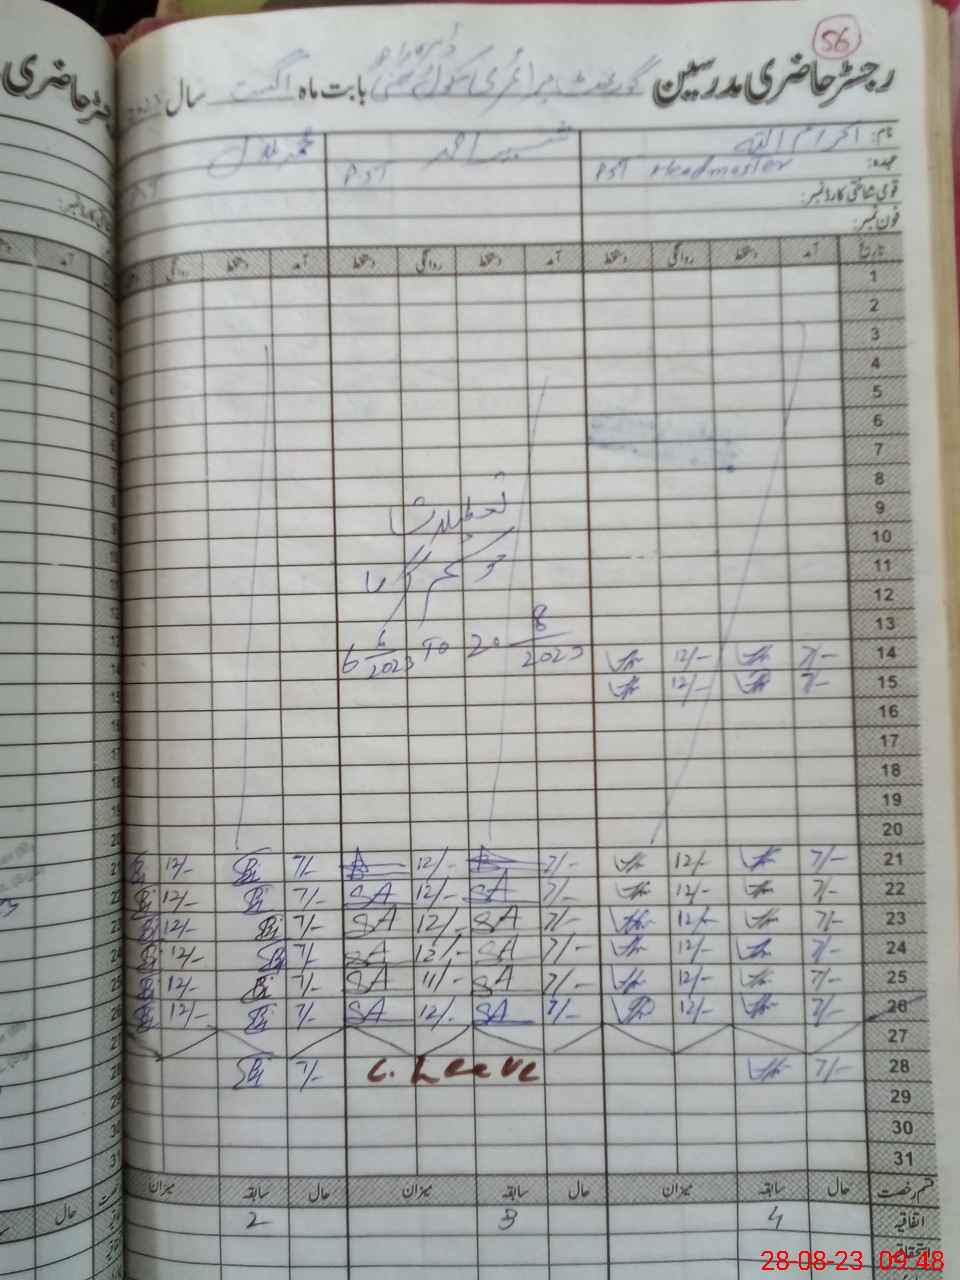 56
رجسٹر حاضری مدرسین گورنمنٹ پرائمری سکول بابت ماہ اگست سال
نام: اکرام اللہ شبیر احمد محمد بلال
عہدہ: PST Headmaster PST PST
قومی شناختی کارڈ نمبر:
فون نمبر:
تاریخ آمد دستخط روانگی دستخط آمد دستخط روانگی دستخط آمد دستخط روانگی
1
2
3
4
5
6
7
8
9
تعطیلات
10
11
موسم گرما
12
13
6 6/2023 To 20 8/2023
14 7/- 12/-
15 7/- 12/-
16
17
18
19
20
21 7/- 12/- 7/- 12/- 7/- 12/-
22 7/- 12/- 7/- SA 12/- SA 7/- 12/-
23 7/- 12/- 7/- SA 12/- SA 7/- 12/-
24 7/- 12/- 7/- SA 12/- SA 7/- 12/-
25 7/- 12/- 7/- SA 11/- SA 7/- 12/-
26 7/- 12/- 7/- SA 12/- SA 7/- 12/-
27
28 7/- C. Leave 7/-
29
30
31
قسم رخصت حال سابقہ میزان حال سابقہ میزان حال سابقہ میزان
اتفاقیہ 4 3 2
28-08-23 09:48